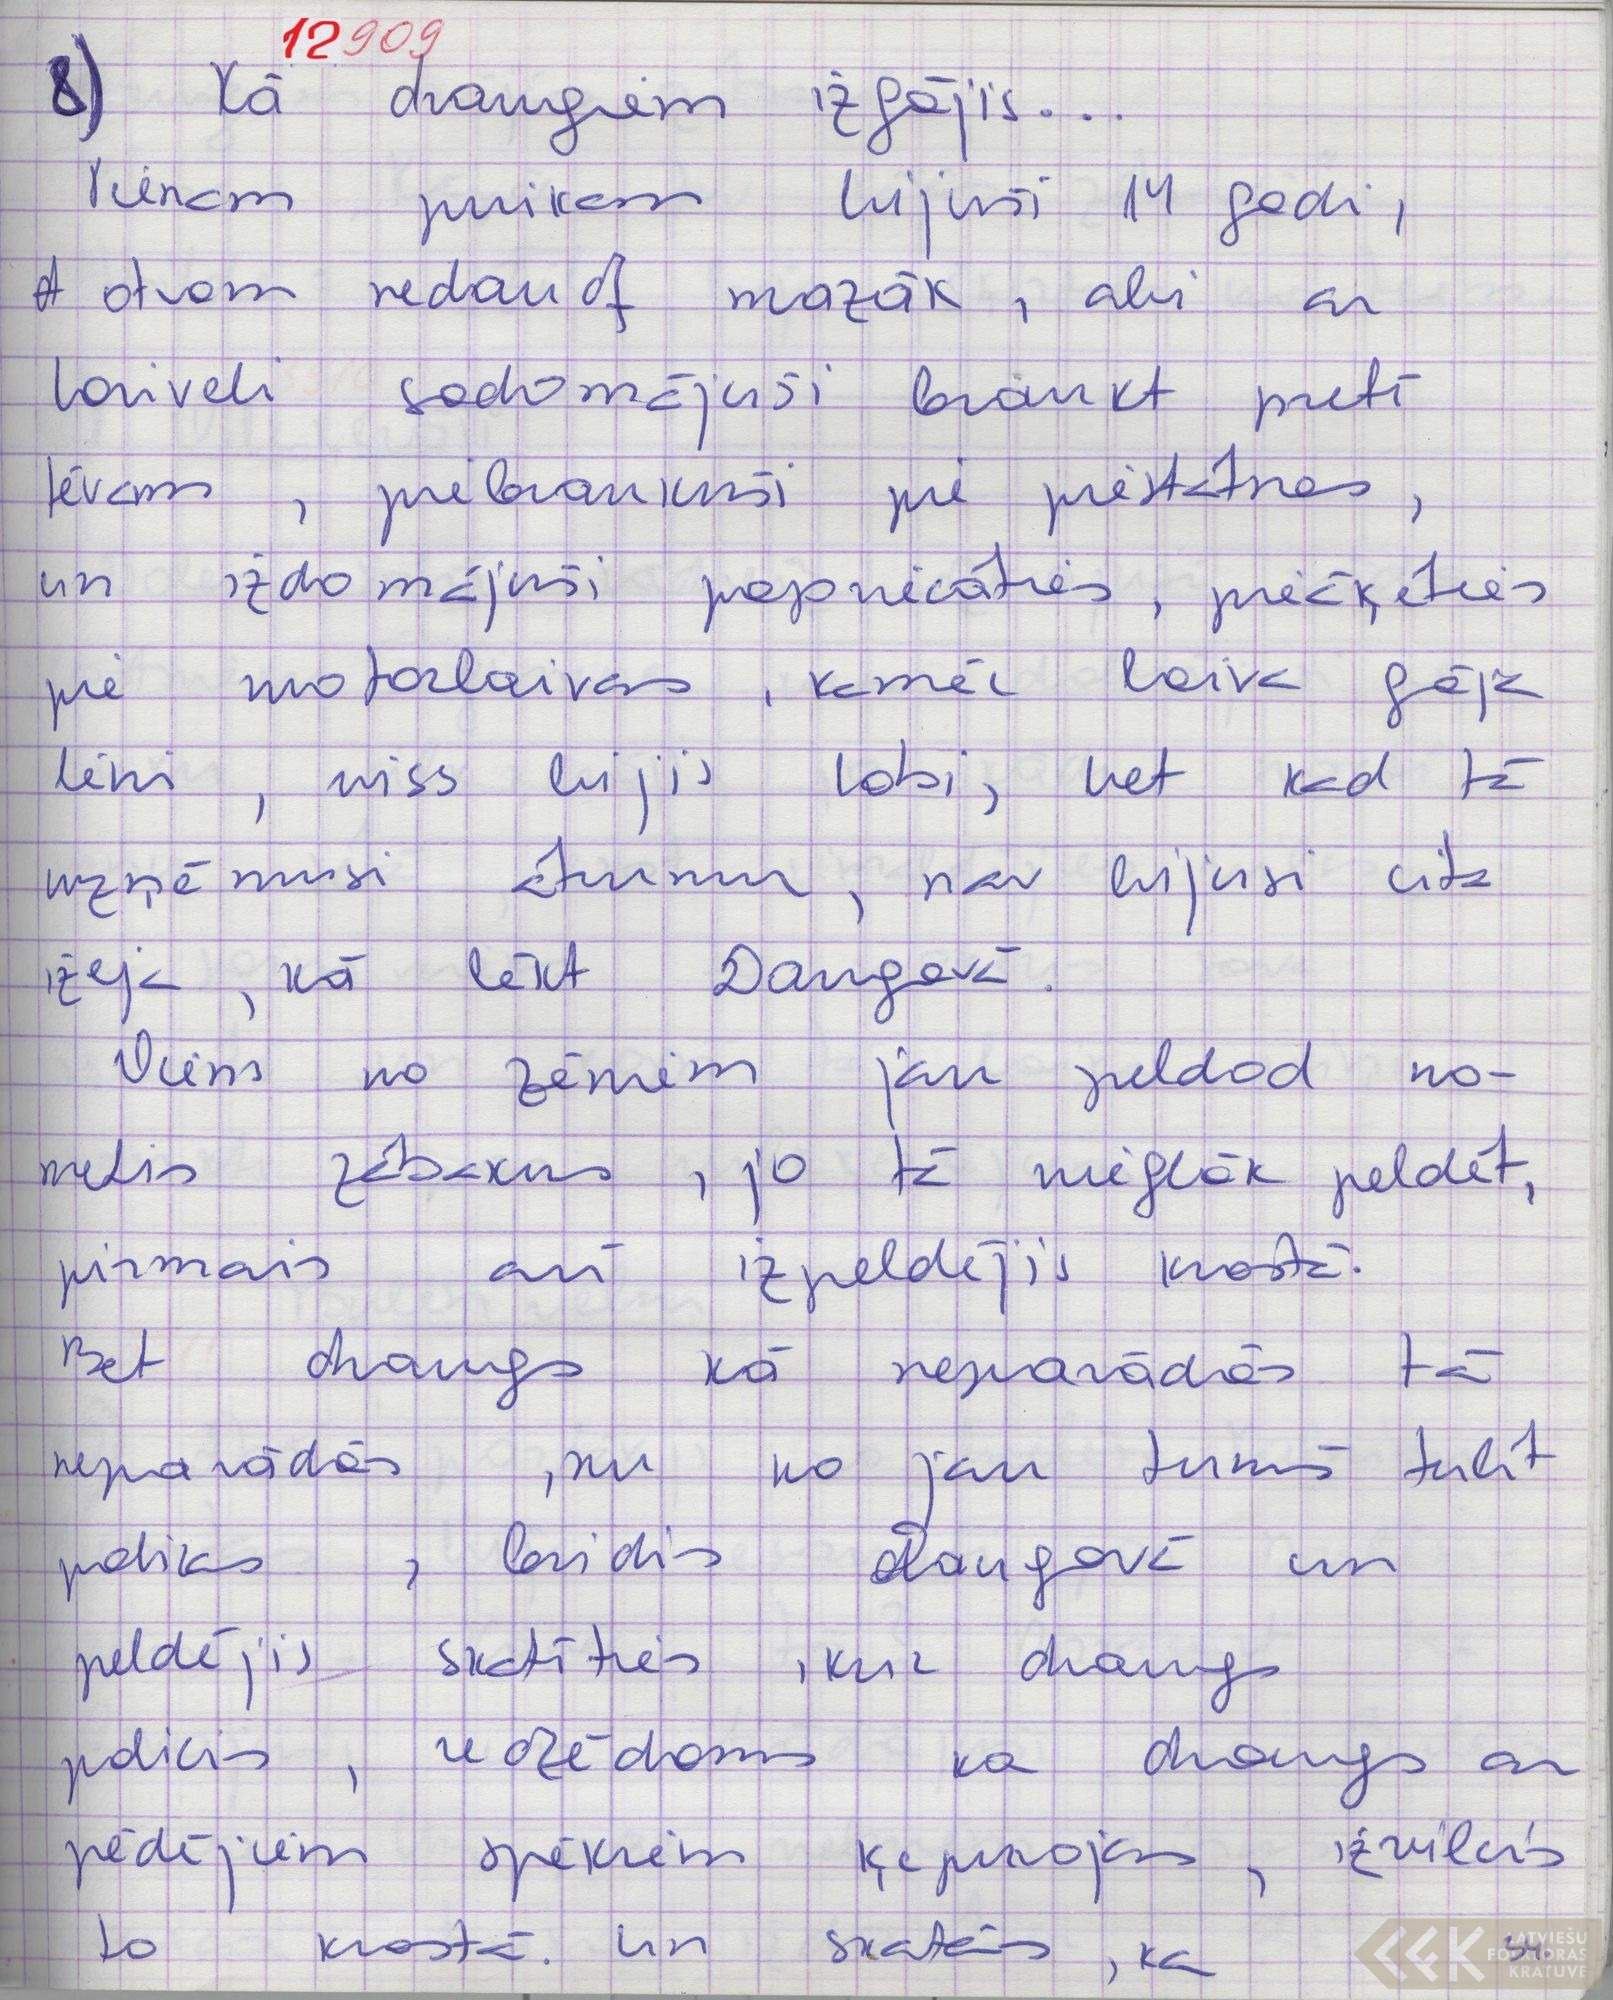 12909
8) Kā draugiem izgājis...
Vienam puikam bijuši 14 gadi,
otram nedaudz mazāk, abi ar
laiveli sadomājuši braukt pretī
tēvam, piebraukuši pie piestātnes,
un izdomājuši papriecāties, pieķēties
pie motorlaivas, kamēr laiva gāja
lēni, viss bijis labi, bet kad tā
uzņēmusi ātrumu, nav bijusi cita
izeja, kā lēkt Daugavā.
Viens no zēniem jau peldod no-
metis zābakus, jo tā vieglāk peldēt,
pirmais arī izpeldējis krastā.
Bet draugs kā neparādās tā
neparādās, nu no jau tumš tulīt
paliks, bridis Daugavā un
peldējis skatīties, kur draugs
palicis, redzēdams ka draugs ar
pēdējiem spēkiem ķepurojas, izvilcis
to krastā. un skatās, ka
54
LATVIEŠU
FOLKLORAS
KRĀTUVE